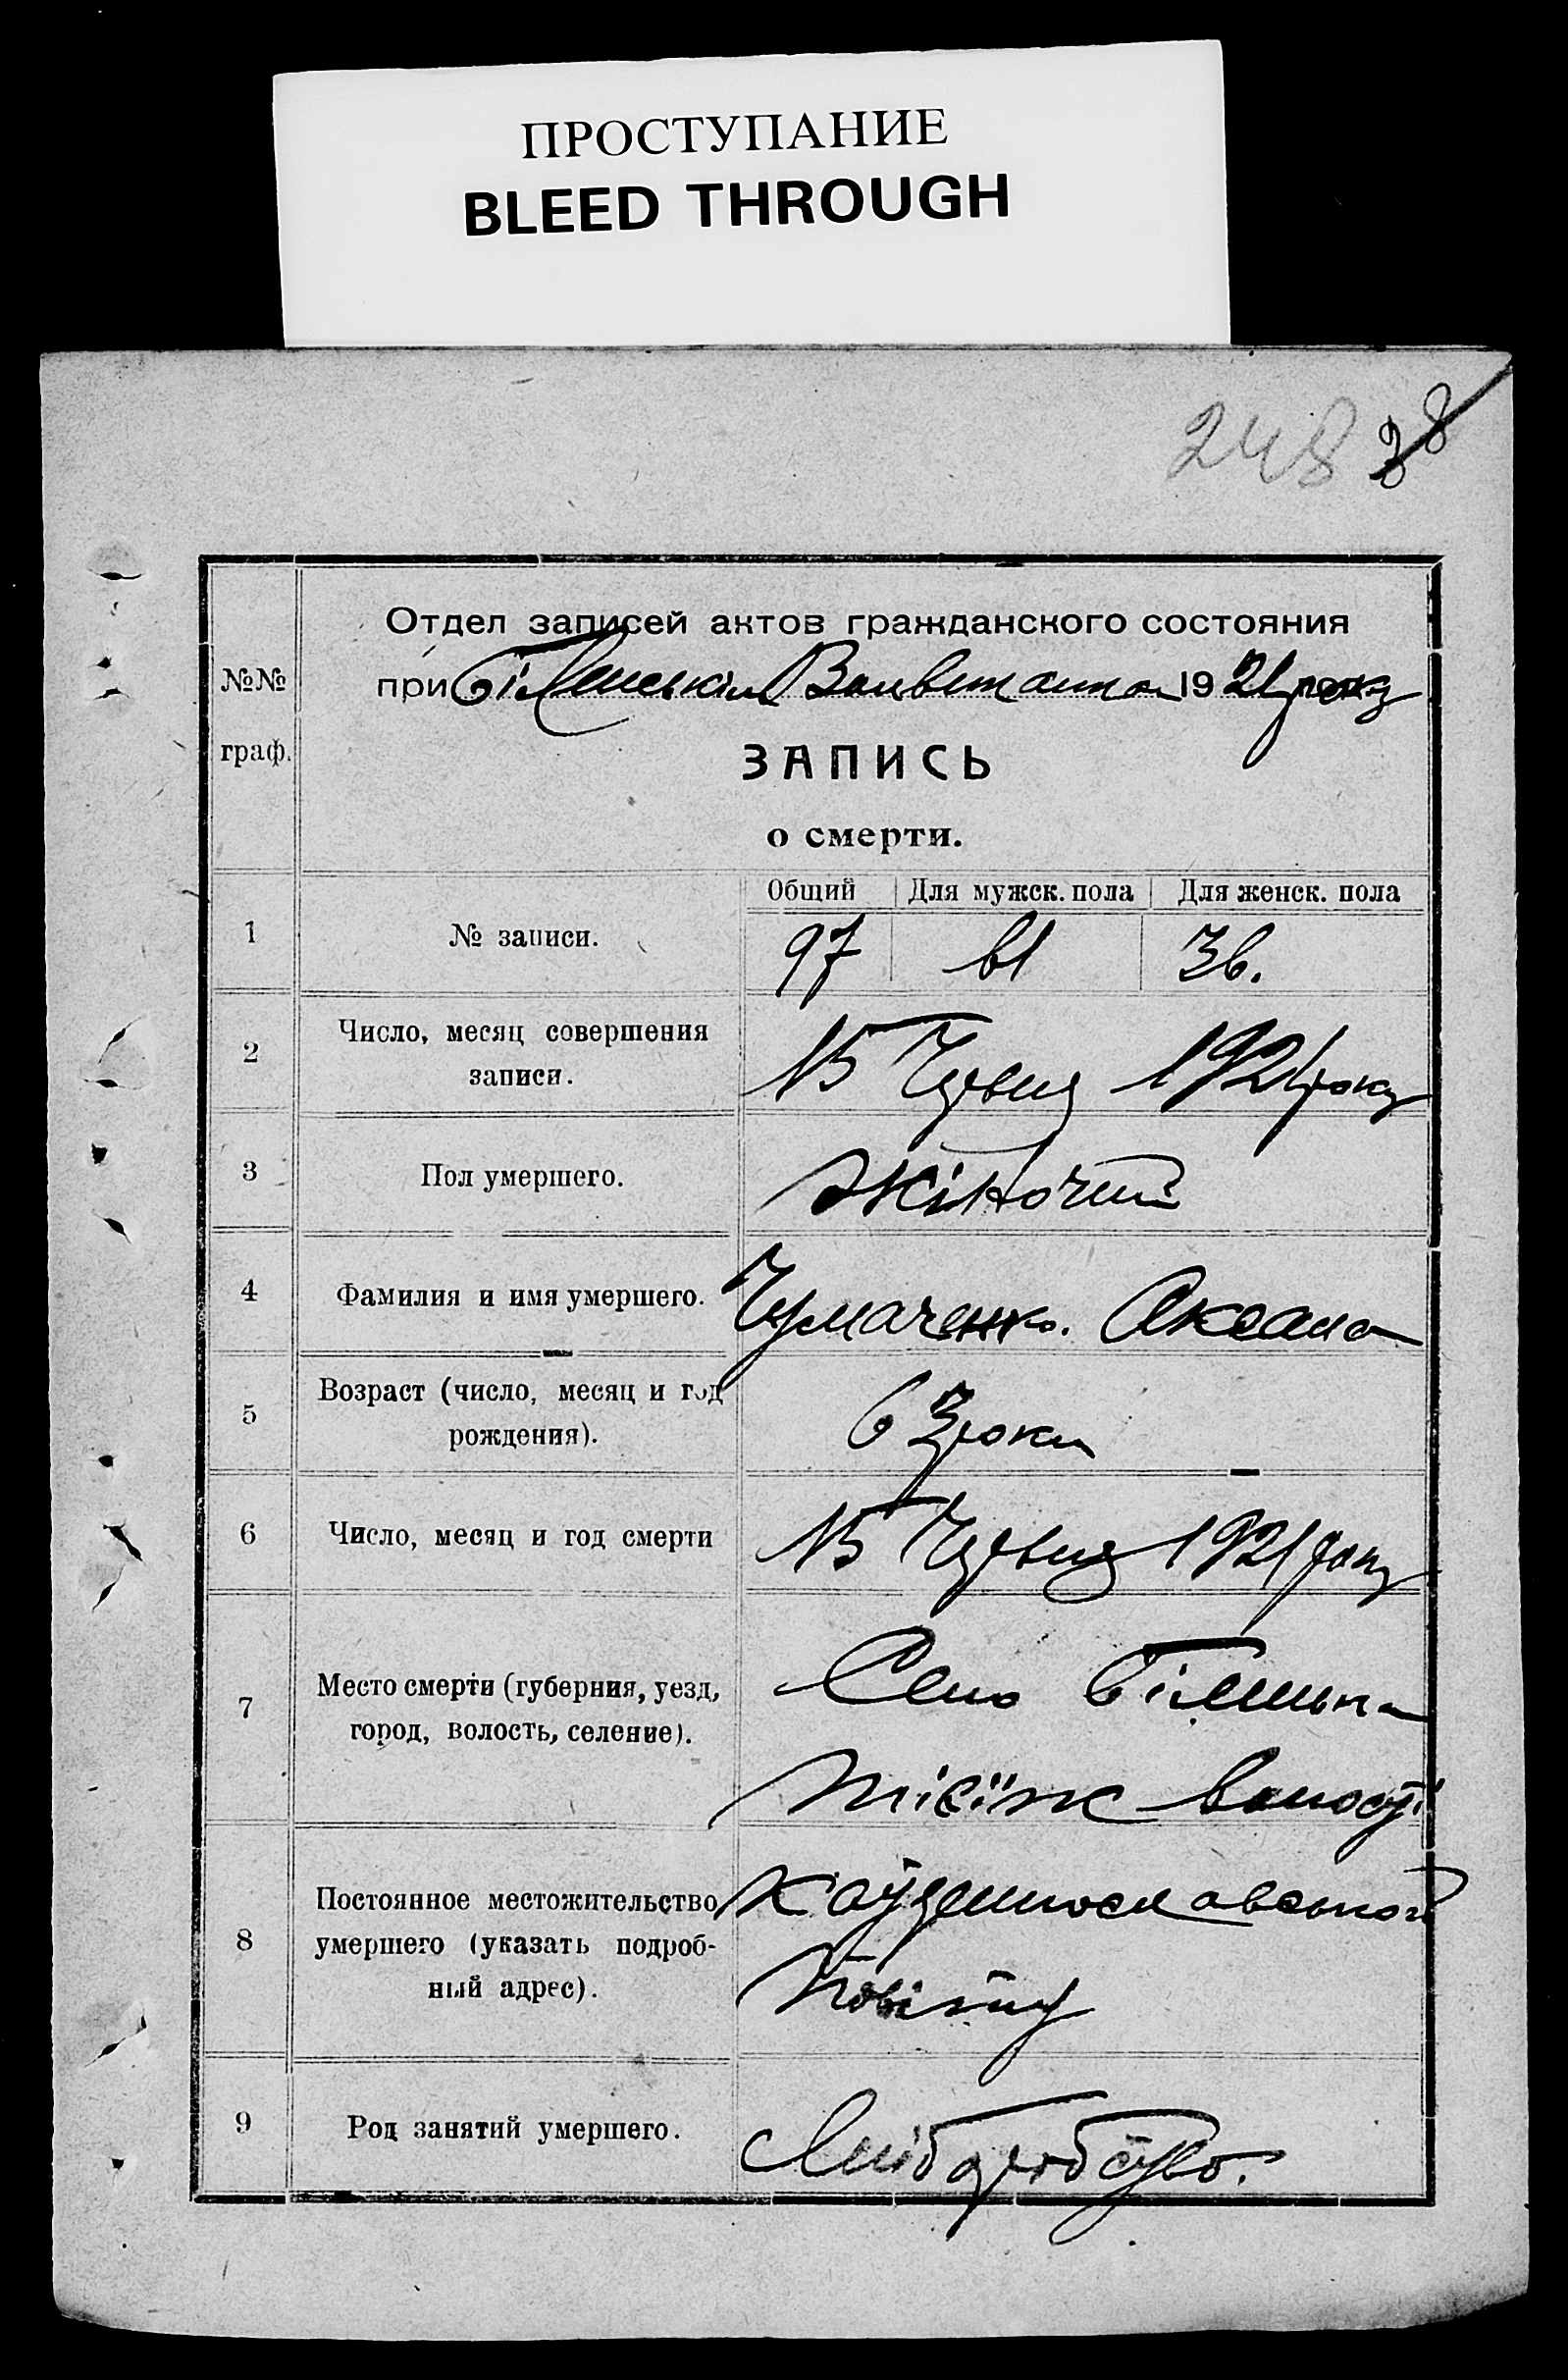 ПРОСТУПАНИЕ
BLEED THROUGH
248 38
Отдел записей актов гражданского состояния
№№ при Біленськім 1921 року
граф.
ЗАПИСЬ
о смерти.
Общий Для мужск. пола Для женск. пола
1 № записи. 97 61 36.
2 Число, месяц совершения
записи. 15 Червня 1921 року
3 Пол умершего. Жіночий
4 Фамилия и имя умершего. Чумаченко. Оксана
5 Возраст (число, месяц и год
рождения). 63 роки
6 Число, месяц и год смерти 15 Червня 1921 року
7 Место смерти (губерния, уезд,
город, волость, селение).
Село Біленьке
волості
8 Постоянное местожительство
умершего (указать подроб-
ный адрес).
повіту
9 Род занятий умершего. Хліборобство.